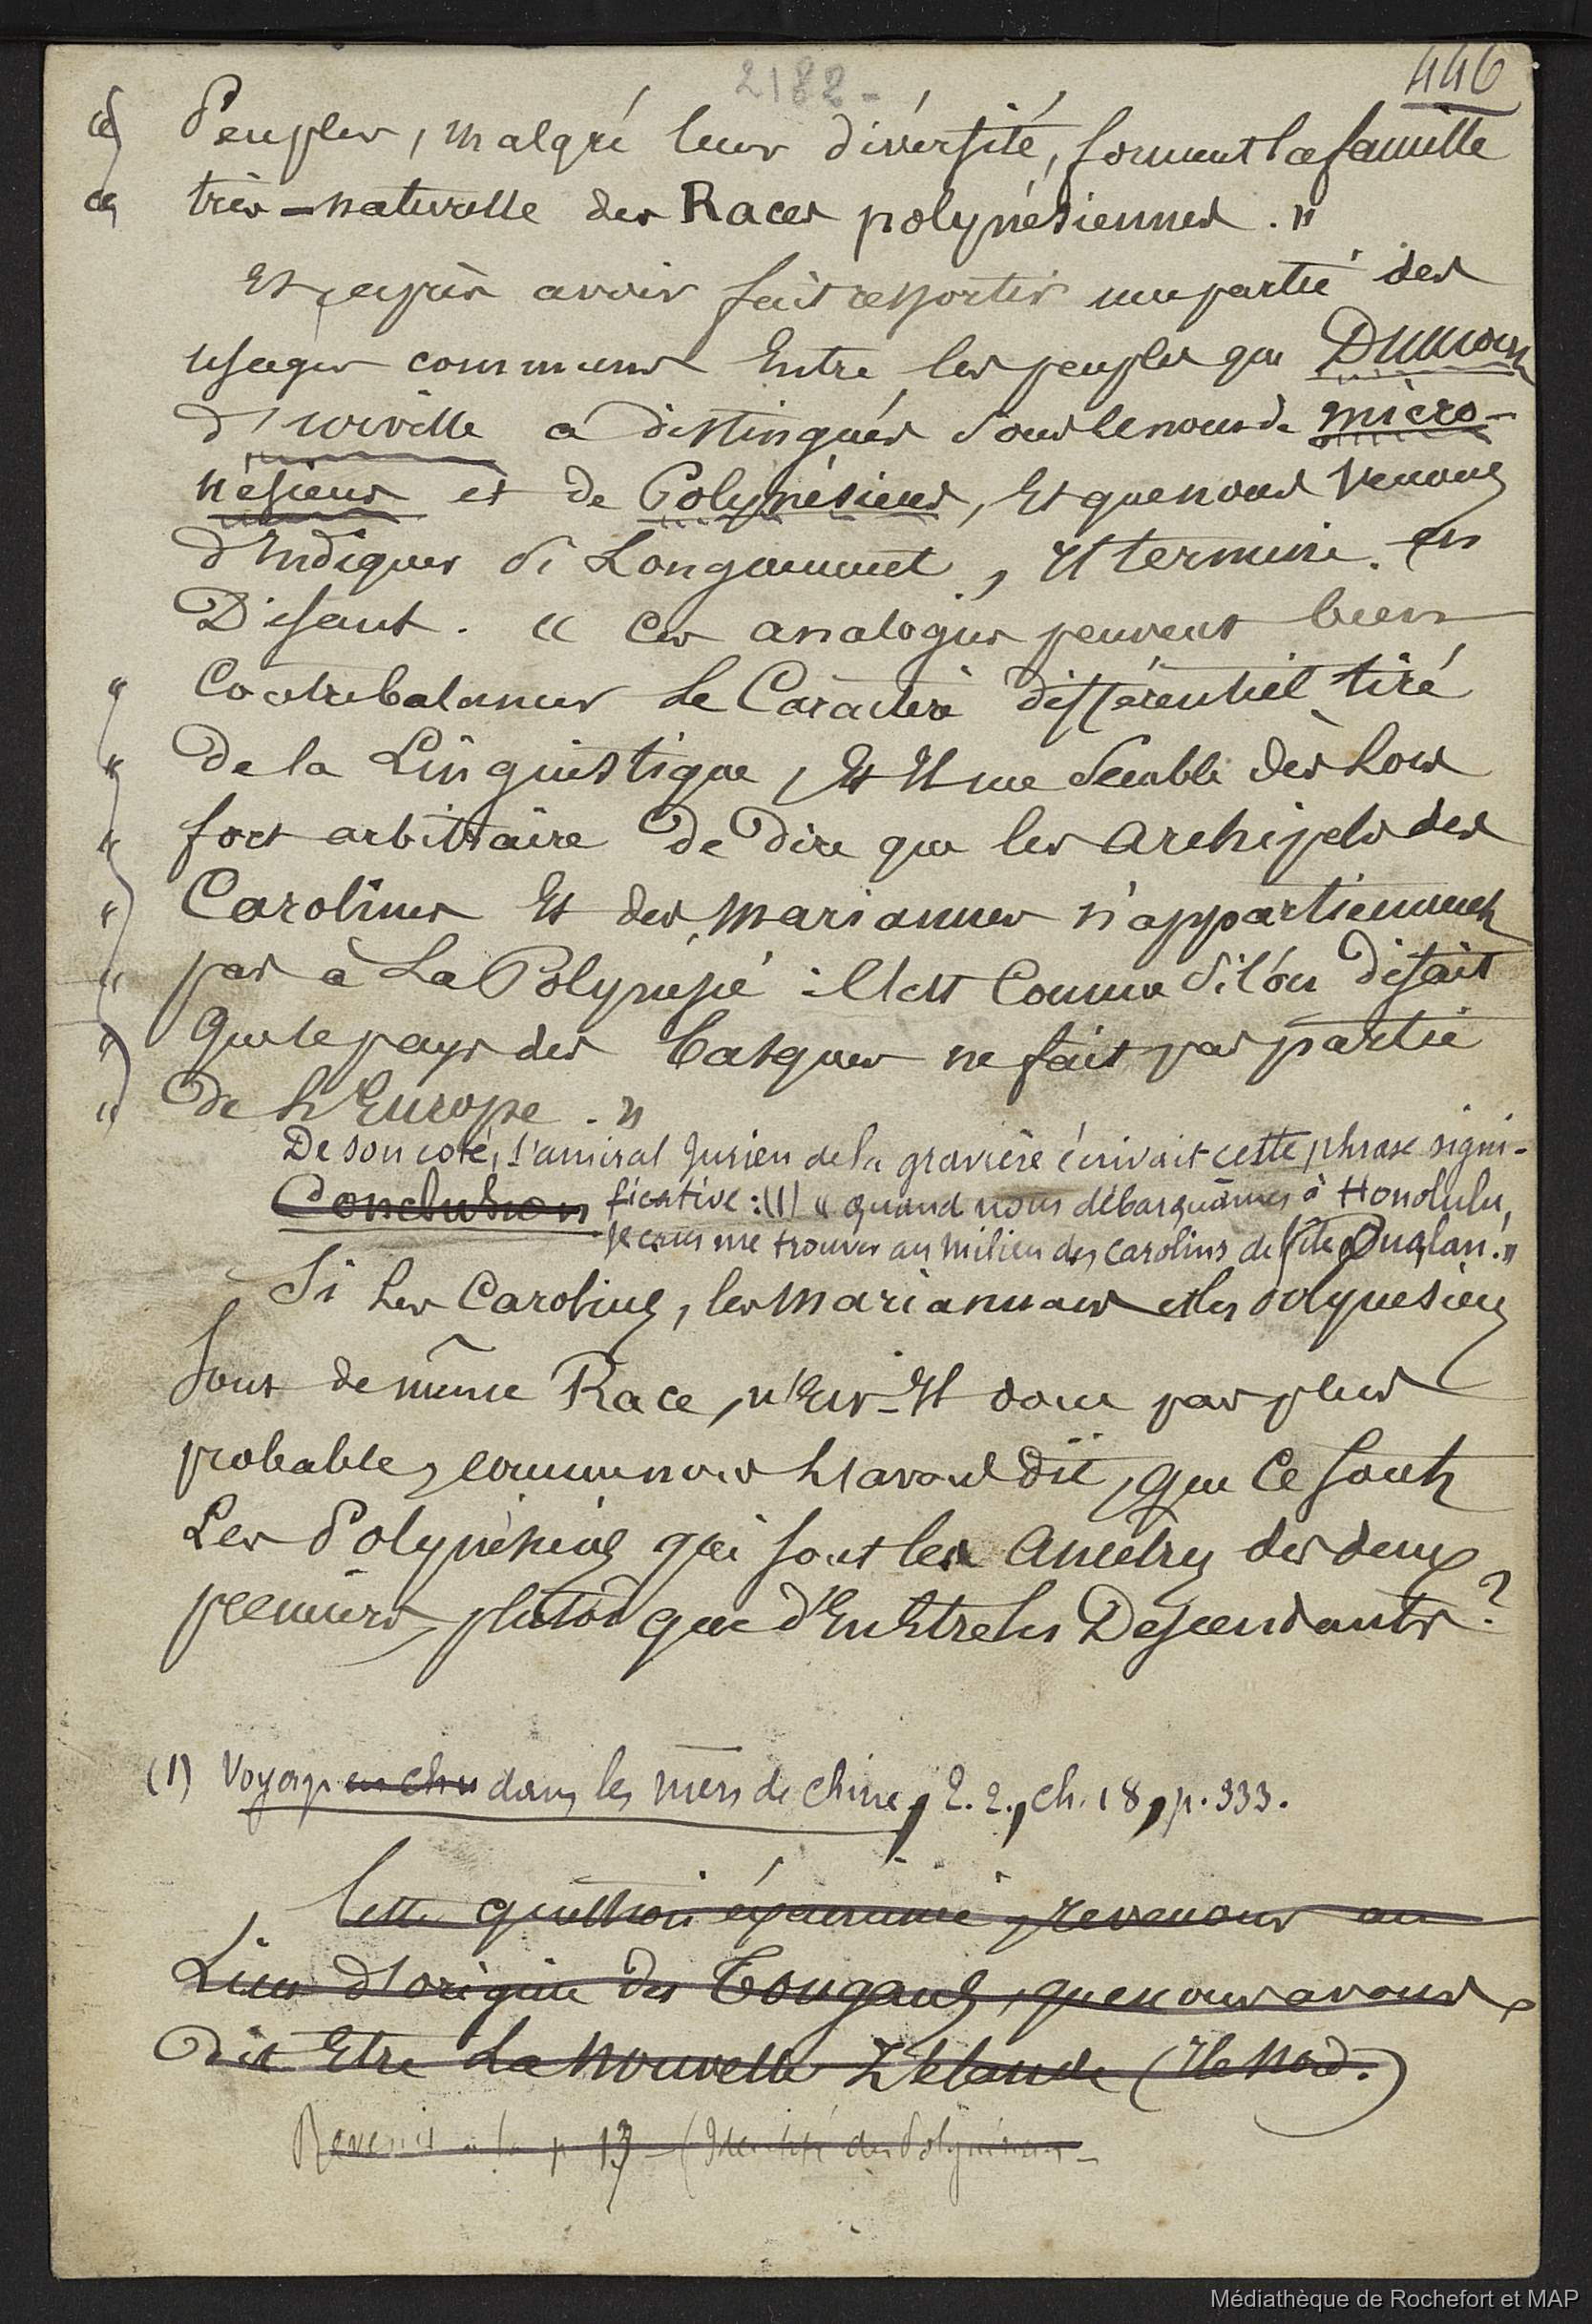 2182 -
446
« Peuples, malgré leur diversité, forment la famille
« très-naturelle des Races polynésiennes. »
Et après avoir fait ressortir une partie des
usages communs Entre les peuples que Dumont
d'urville a distingués sous le nom de micro-
nésiens et de Polynésiens, Et que nous venons
d'Indiquer si Longuement, Il termine en
Disant. « Ces analogies peuvent bien
« Contrebalancer Le Caractère différentiel tiré
« De la Linguistique, Et Il me semble dès Lors
« fort arbitraire De Dire que les archipels des
« Carolines Et des mariannes n'appartiennent
« pas à La Polynésie : C'est Comme si l'on disait
« Que le pays des Basques ne fait pas partie
« De L'Europe. »
De son coté, l'amiral Jurien de la gravière écrivait cette phrase signi-
Conclusion ficative : (1) « quand nous débarquâmes à Honolulu,
je crus me trouver au milieu des carolins de l'île Oualan. »
Si Les Carolins, les mariannais et les polynésiens
sont de même Race, n'Est-Il donc pas plus
probable, comme nous L'avons dit, que Ce sont
Les Polynésiens qui sont les ancêtres des deux
premiers, plutôt que d'En Etre les Descendants ?
(1) Voyage en chi dans les mers de chine, 2. 2., ch. 18, p. 333.
Cette question éxaminée, revenons au
Lieu d'origine des Tongans, que nous avons
Dit Etre La Nouvelle Zélande (Ile Nord.)
Revenir à la p 13 (Identité des Polynésiens -
Médiathèque de Rochefort et MAP